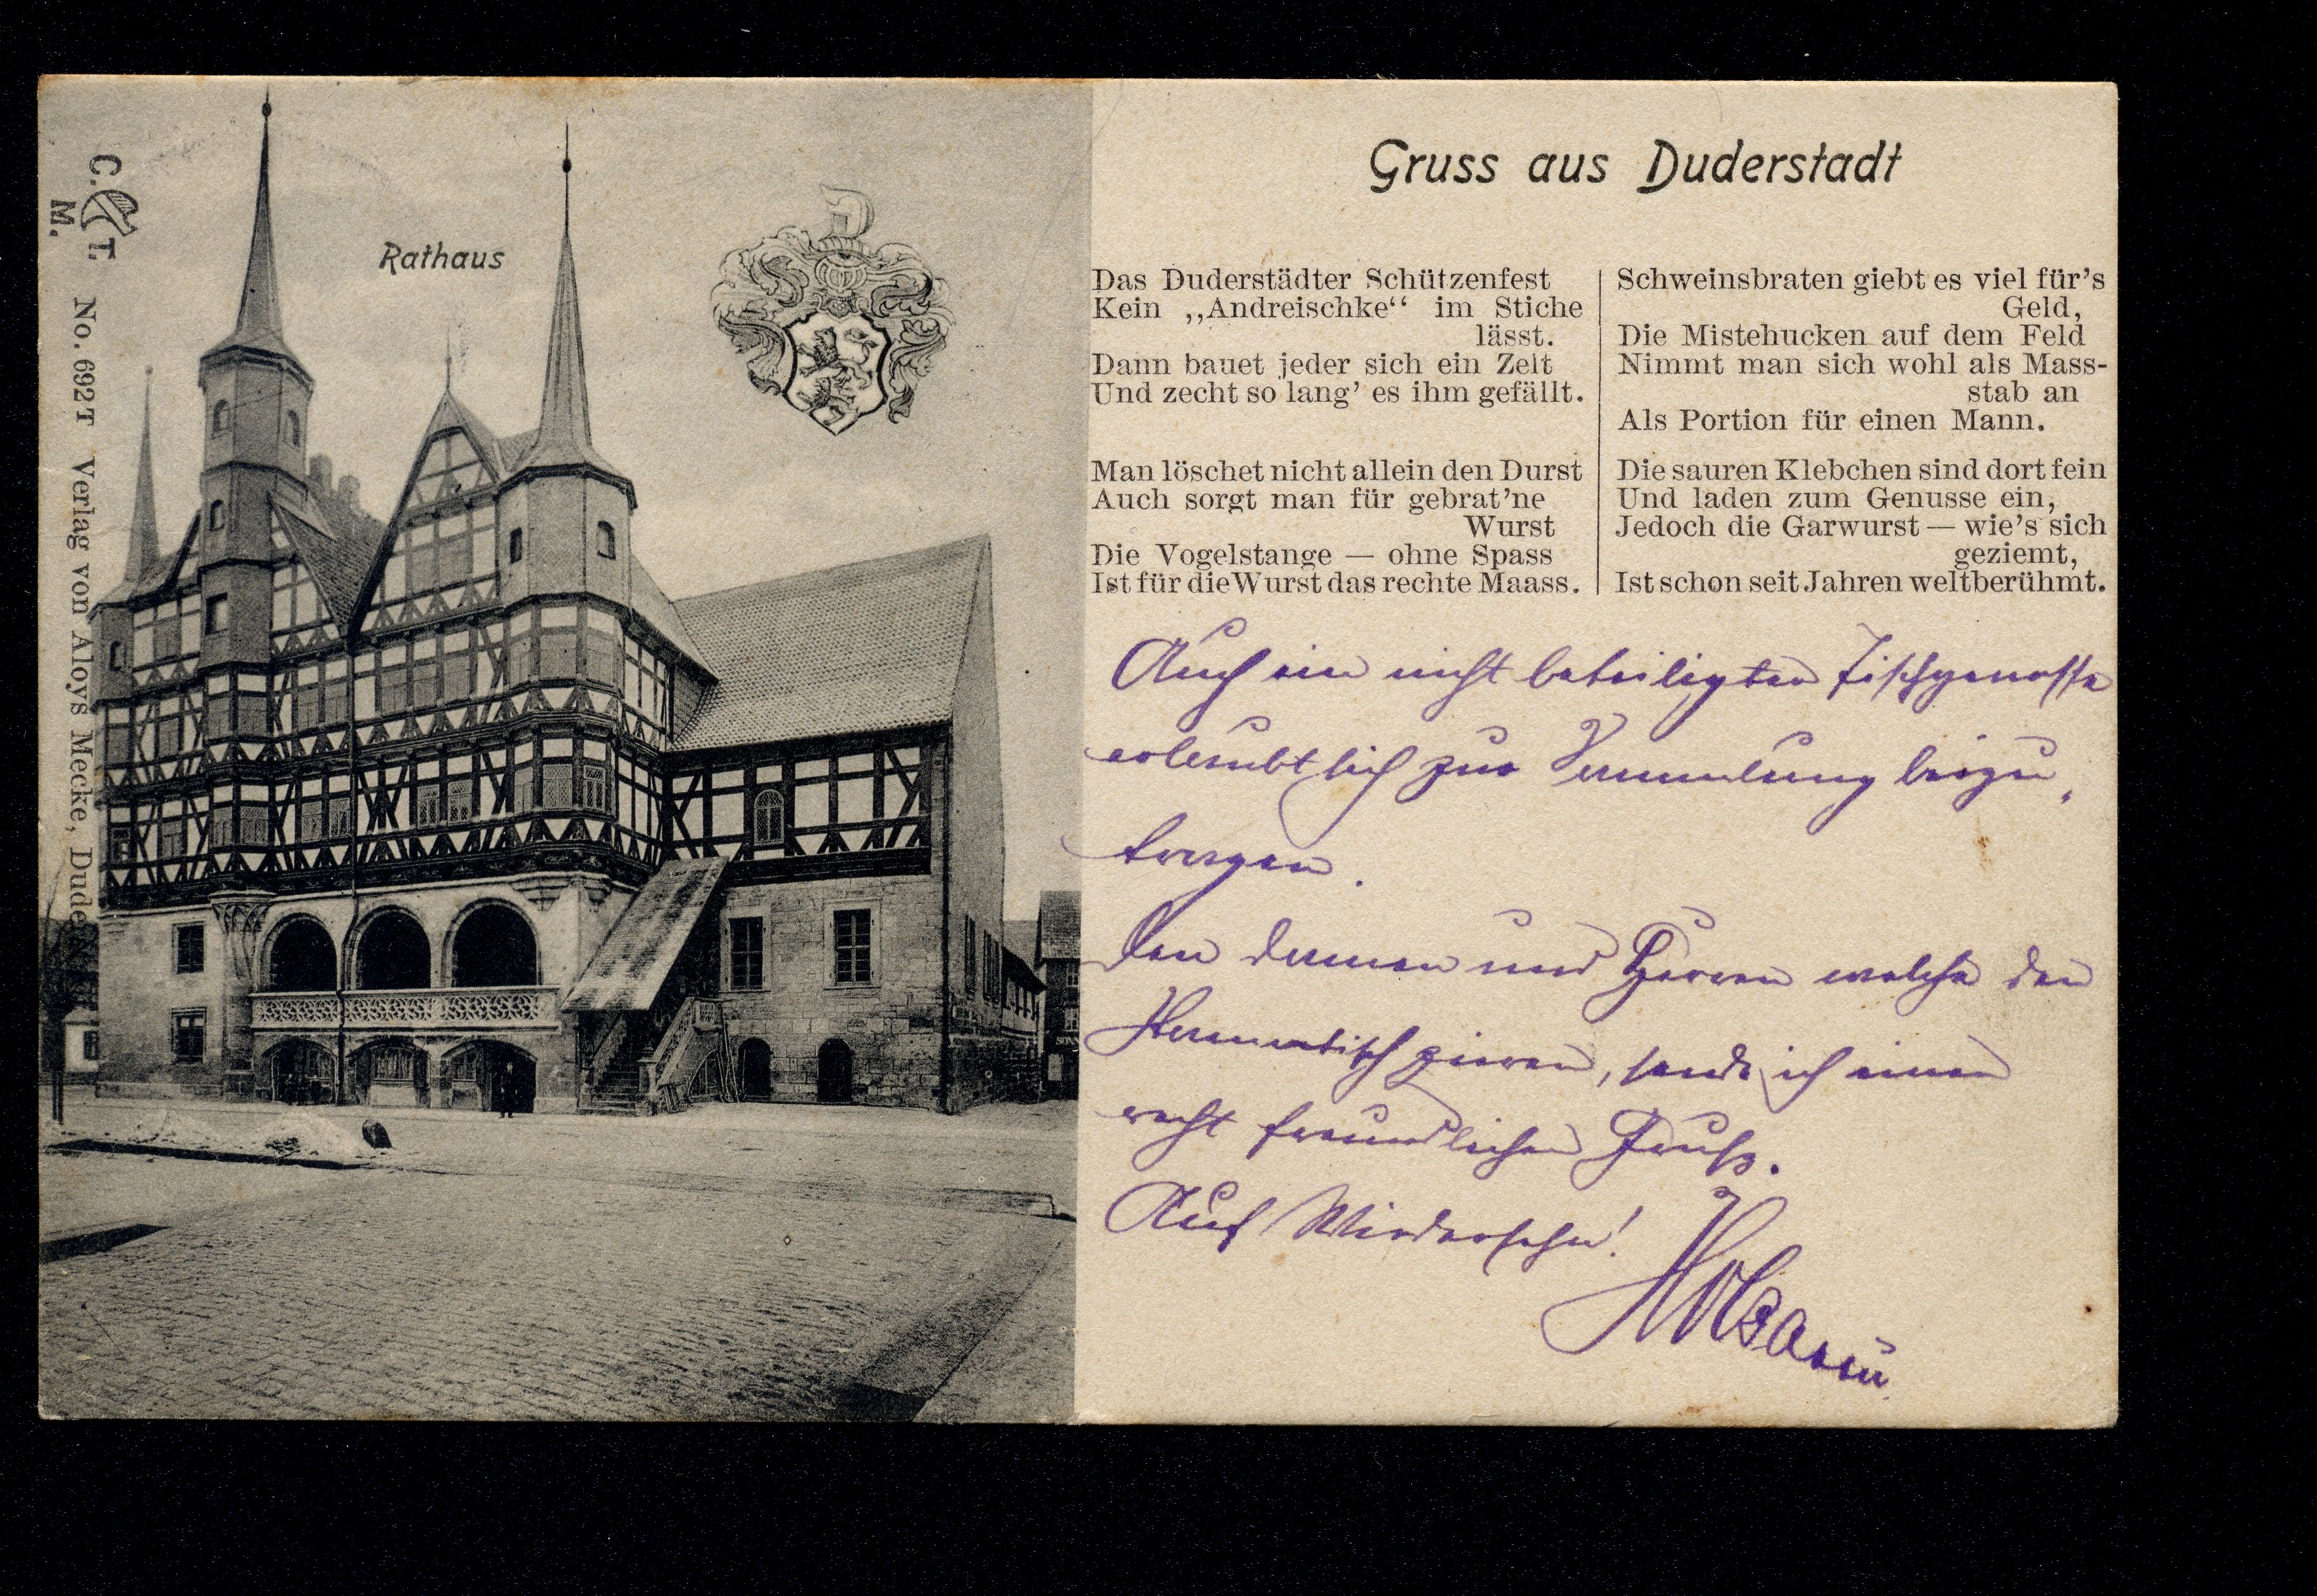 Gruss aus Duderstadt
Rathaus
D
C. T.
M.
No. 692T Verlag von Aloys Mecke, Duder
Das Duderstädter Schützenfest
Kein „Andreischke“ im Stiche
lässt.
Dann bauet jeder sich ein Zelt
Und zecht so lang’ es ihm gefällt.
Man löschet nicht allein den Durst
Auch sorgt man für gebrat’ne
Wurst
Die Vogelstange — ohne Spass
Ist für die Wurst das rechte Maass.
Schweinsbraten giebt es viel für’s
Geld,
Die Mistehucken auf dem Feld
Nimmt man sich wohl als Mass-
stab an
Als Portion für einen Mann.
Die sauren Klebchen sind dort fein
Und laden zum Genusse ein,
Jedoch die Garwurst — wie’s sich
geziemt,
Ist schon seit Jahren weltberühmt.
Auch ein nicht beteiligter Tischgenosse
erlaubt sich zur Sammlung beizu
tragen.
Den Damen und Herren welche den
Stammtisch zieren, sende ich einen
recht freundlichen Gruß.
Auf Wiedersehn!